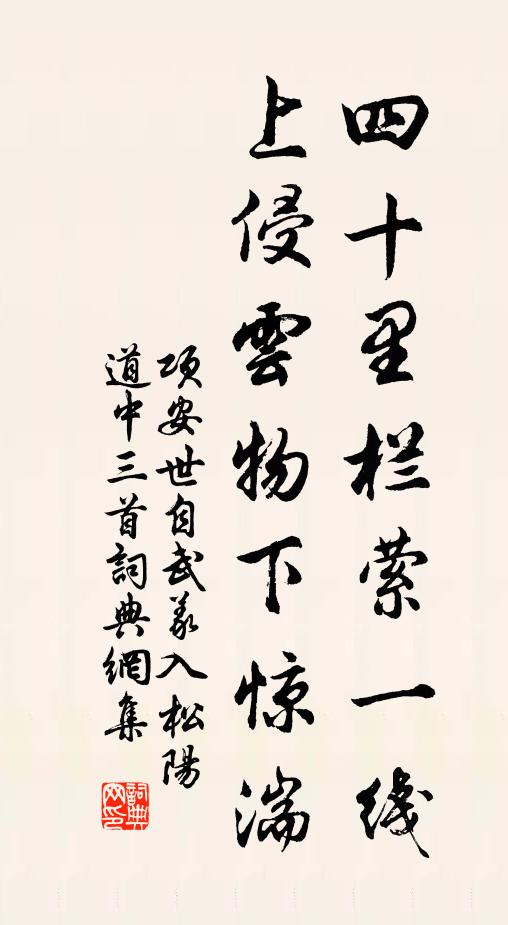 四十里栏萦一綫
上侵雲物下惊湍
项安世自武义入松陽
道中三首詞典網集
詞典网印